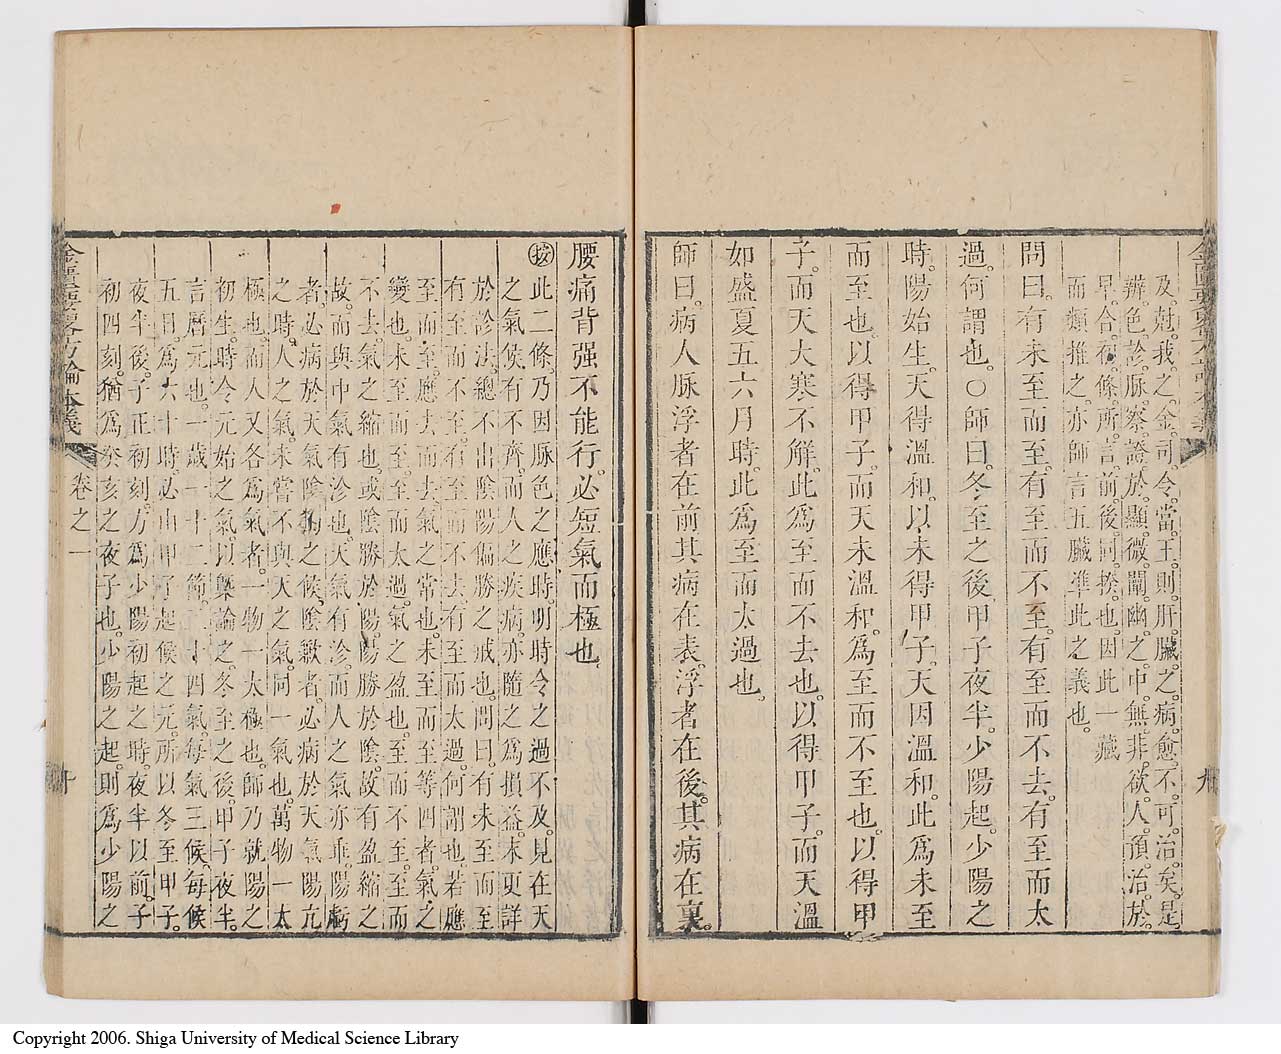 及尅我之金司令當王則肝臟之病愈不可治矣是
辨色診脉察證於顯微闡幽之中無非欲人預治於
早合後條所言前後同揆也因此一藏
而類推之亦師言五臟準此之義也
問曰有未至而至有至而不至有至而不去有至而太
過何謂也○師曰冬至之後甲子夜半少陽起少陽之
時陽始生天得溫和以未得甲子天因溫和此為未至
而至也以得甲子而天未溫和為至而不至也以得甲
子而天大寒不解此為至而不去也以得甲子而天溫
如盛夏五六月時此為至而太過也
師曰病人脉浮者在前其病在表浮者在後其病在裏
九
腰痛背强不能行必短氣而極也
按此二條乃因脉色之應時明時令之過不及見在天
之氣候有不齊而人之疾病亦隨之為損益末更詳
於診法總不出陰陽偏勝之戒也問曰有未至而至
有至而不至有至而不去有至而太過何謂也若應
至而至應去而去氣之常也未至而至等四者氣之
變也未至而至至而太過氣之盈也至而不至至而
不去氣之縮也或陰勝於陽陽勝於陰故有盈縮之
故而與中氣有沴也天氣有沴而人之氣亦乖陽虧
者必病於天氣陰之候陰歉者必病於天氣陽亢
之時人之氣未嘗不與天之氣同一氣也萬物一太
極也而人又各為氣者一物一太極也師乃就陽之
初生時令元始之氣以槩論之冬至之後甲子夜半
言曆元也一歲一十二節二十四氣每氣三候每候
五日為六十時必由甲子起候之元所以冬至甲子
夜半後子正初刻方為少陽初起之時夜半以前子
初四刻猶為癸亥之夜子也少陽之起則為少陽之
金匱要畧方論本義
卷之一
十
Copyright 2006. Shiga University of Medical Science Library